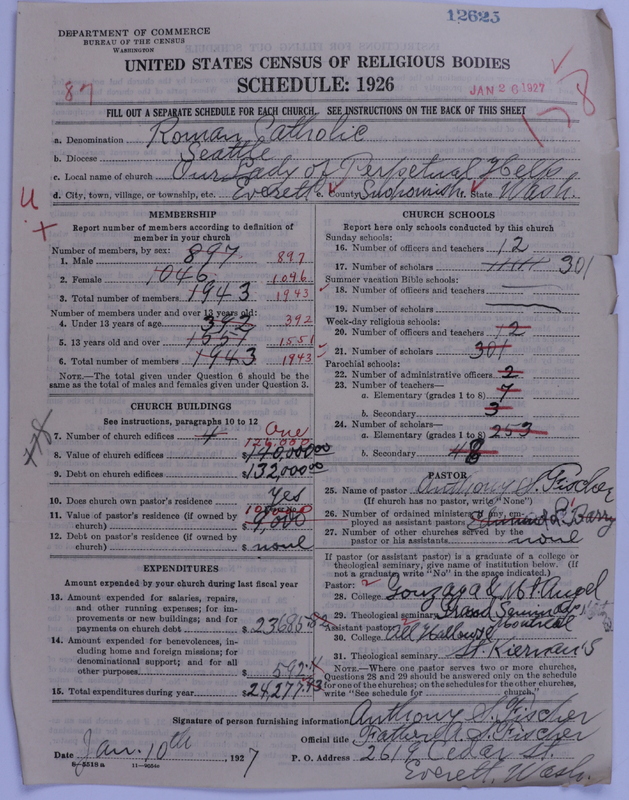 12625
DEPARTMENT OF COMMERCE
BUREAU OF THE CENSUS
WASHINGTON
UNITED STATES CENSUS OF RELIGIOUS BODIES
SCHEDULE: 1926
87
JAN 26 1927
178
FILL OUT A SEPARATE SCHEDULE FOR EACH CHURCH. SEE INSTRUCTIONS ON THE BACK OF THIS SHEET
a. Denomination Roman Catholic
b. Diocese Seattle
c. Local name of church Our Lady of Perpetual Help
d. City, town, village, or township, etc. Everett e. County Snohomish f. State Wash.
MEMBERSHIP
Report number of members according to definition of
member in your church
Number of members, by sex:
1. Male 897 897
2. Female 1046 1046
3. Total number of members 1943 1943
Number of members under and over 13 years old:
4. Under 13 years of age 392 392
5. 13 years old and over 1551 1551
6. Total number of members 1943 1943
NOTE.—The total given under Question 6 should be
same as the total of males and females given under Question 3.
CHURCH BUILDINGS
See instructions, paragraphs 10 to 12
7. Number of church edifices 4 One
8. Value of church edifices $140,000.00
9. Debt on church edifices $132,000.00
10. Does church own pastor's residence yes
11. Value of pastor's residence (if owned by
church) $9,000
12. Debt on pastor's residence (if owned by
church) $ none
EXPENDITURES
Amount expended by your church during last fiscal year
13. Amount expended for salaries, repairs,
and other running expenses; for im-
provements or new buildings; and for
payments on church debt $23685
14. Amount expended for benevolences, in-
cluding home and foreign missions; for
denominational support; and for all
other purposes $592
15. Total expenditures during year $24,277.43
CHURCH SCHOOLS
Report here only schools conducted by this church
Sunday schools:
16. Number of officers and teachers 12
17. Number of scholars 301
Summer vacation Bible schools:
18. Number of officers and teachers
19. Number of scholars
Week-day religious schools:
20. Number of officers and teachers 12
21. Number of scholars 301
Parochial schools:
22. Number of administrative officers 2
23. Number of teachers—
a. Elementary (grades 1 to 8) 7
b. Secondary 3
24. Number of scholars—
a. Elementary (grades 1 to 8) 253
b. Secondary 48
PASTOR
25. Name of pastor Anthony S. Fischer
(If church has no pastor, write "None")
26. Number of ordained ministers, if any, em-
ployed as assistant pastors Edmund P. Barry
27. Number of other churches served by the
pastor or his assistants none
If pastor (or assistant pastor) is a graduate of a college or
theological seminary, give name of institution below. (If
not a graduate, write "No" in the space indicated.)
Pastor:
28. College Gonzaga & Mt. Angel
29. Theological seminary Grand Seminary Montreal
Assistant pastor:
30. College All Hallows
31. Theological seminary St. Kiernan's
NOTE.—Where one pastor serves two or more churches,
Questions 28 and 29 should be answered only on the schedule
for one of the churches; on the schedules for the other churches,
write "See schedule for church."
Signature of person furnishing information Anthony S. Fischer
Official title Father A. S. Fischer
Date Jan. 10th, 1927
P. O. Address 2619 Cedar St.
Everett, Wash.
8—5518a 11—9554b